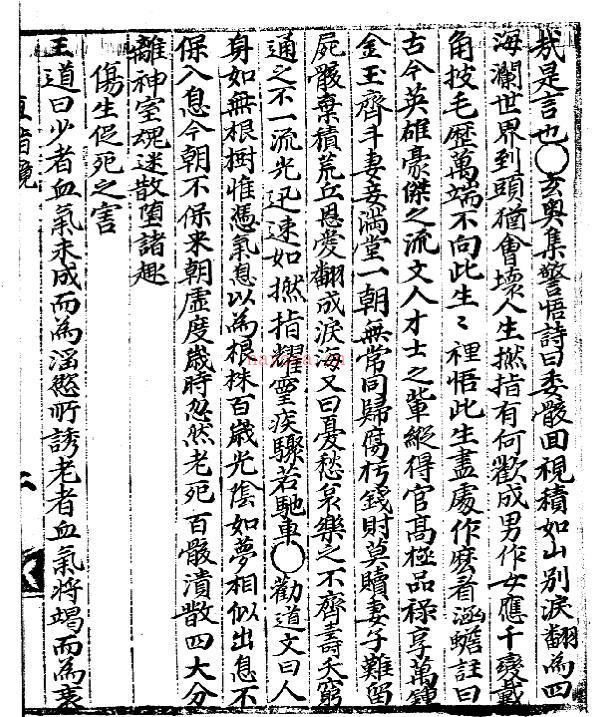 哉是言也○玄奥集警悟詩曰委骸回視積如山别淚翻為四
海瀾世界到頭猶會壊人生撚指有何歡成男作女應千變戴
角披毛歴萬端不向此生〻裡悟此生盡處作麽看涵蟾註曰
古今英雄豪傑之流文人才士之輩縱得官髙極品禄享萬鍾
金玉齊斗妻妾滿堂一朝無常同歸腐朽錢財莫贖妻子難留
屍骸棄積荒丘恩愛翻成淚海又曰憂愁哀樂之不齊壽夭窮
通之不一流光迅速如撚指耀電疾驟若馳車○勸道文曰人
身如無根樹惟憑氣息以為根株百歲光陰如夢相似出息不
保入息今朝不保来朝虚度歲時忽然老死百骸潰散四大分
離神室魂迷散堕諸趣
傷生促死之害
王道曰少者血氣未成而為滛慾所誘老者血氣將竭而為衰
直指